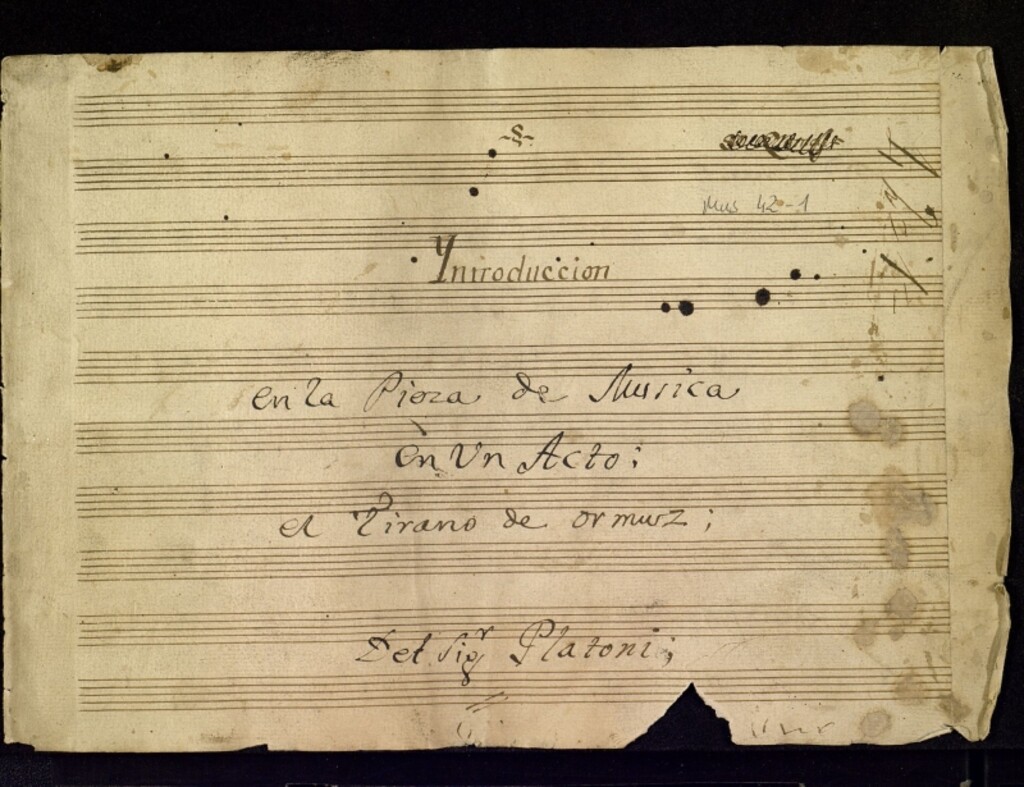 Mus 42-1
Yntroduccion
en la Pieza de Musica
en Un Acto;
el Tirano de ormuz;
Del Sigr Platoni;